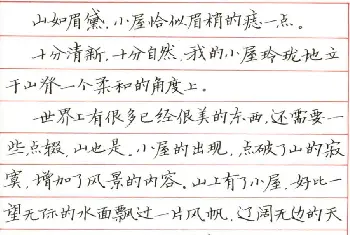 山如眉黛，小屋恰似眉梢的痣一点。
十分清新，十分自然，我的小屋玲珑地立
于山脊一个柔和的角度上。
世界上有很多已经很美的东西，还需要一
些点缀，山也是。小屋的出现，点破了山的寂
寞，增加了风景的内容。山上有了小屋，好比一
望无际的水面飘过一片风帆，辽阔无边的天